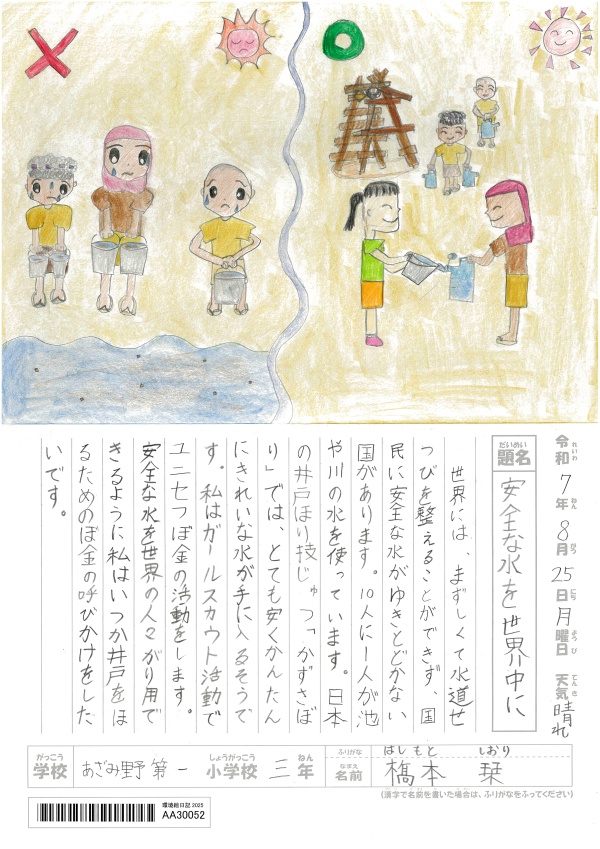 令和7年8月25日月曜日 天気晴れ
れいわ ねん がつ にち ようび てんき
だいめい
題名 安全な水を世界中に
世界には、まずしくて水道せ
つびを整えることができず、国
民に安全な水がゆきとどかない
国があります。10人に1人が池
や川の水を使っています。日本
の井戸ほり技じゅつ「かずさぼ
り」では、とても安くかんたん
にきれいな水が手に入るそうで
す。私はガールスカウト活動で
ユニセフぼ金の活動をします。
安全な水を世界の人々がり用で
きるように私はいつか井戸をほ
るためのぼ金の呼びかけをした
いです。
がっこう しょうがっこう ねん
学校 あざみ野第一 小学校 三年
ふりがな はしもと しおり
なまえ
名前 橋本 栞
(漢字で名前を書いた場合は、ふりがなをふってください)
環境絵日記 2025
AA30052